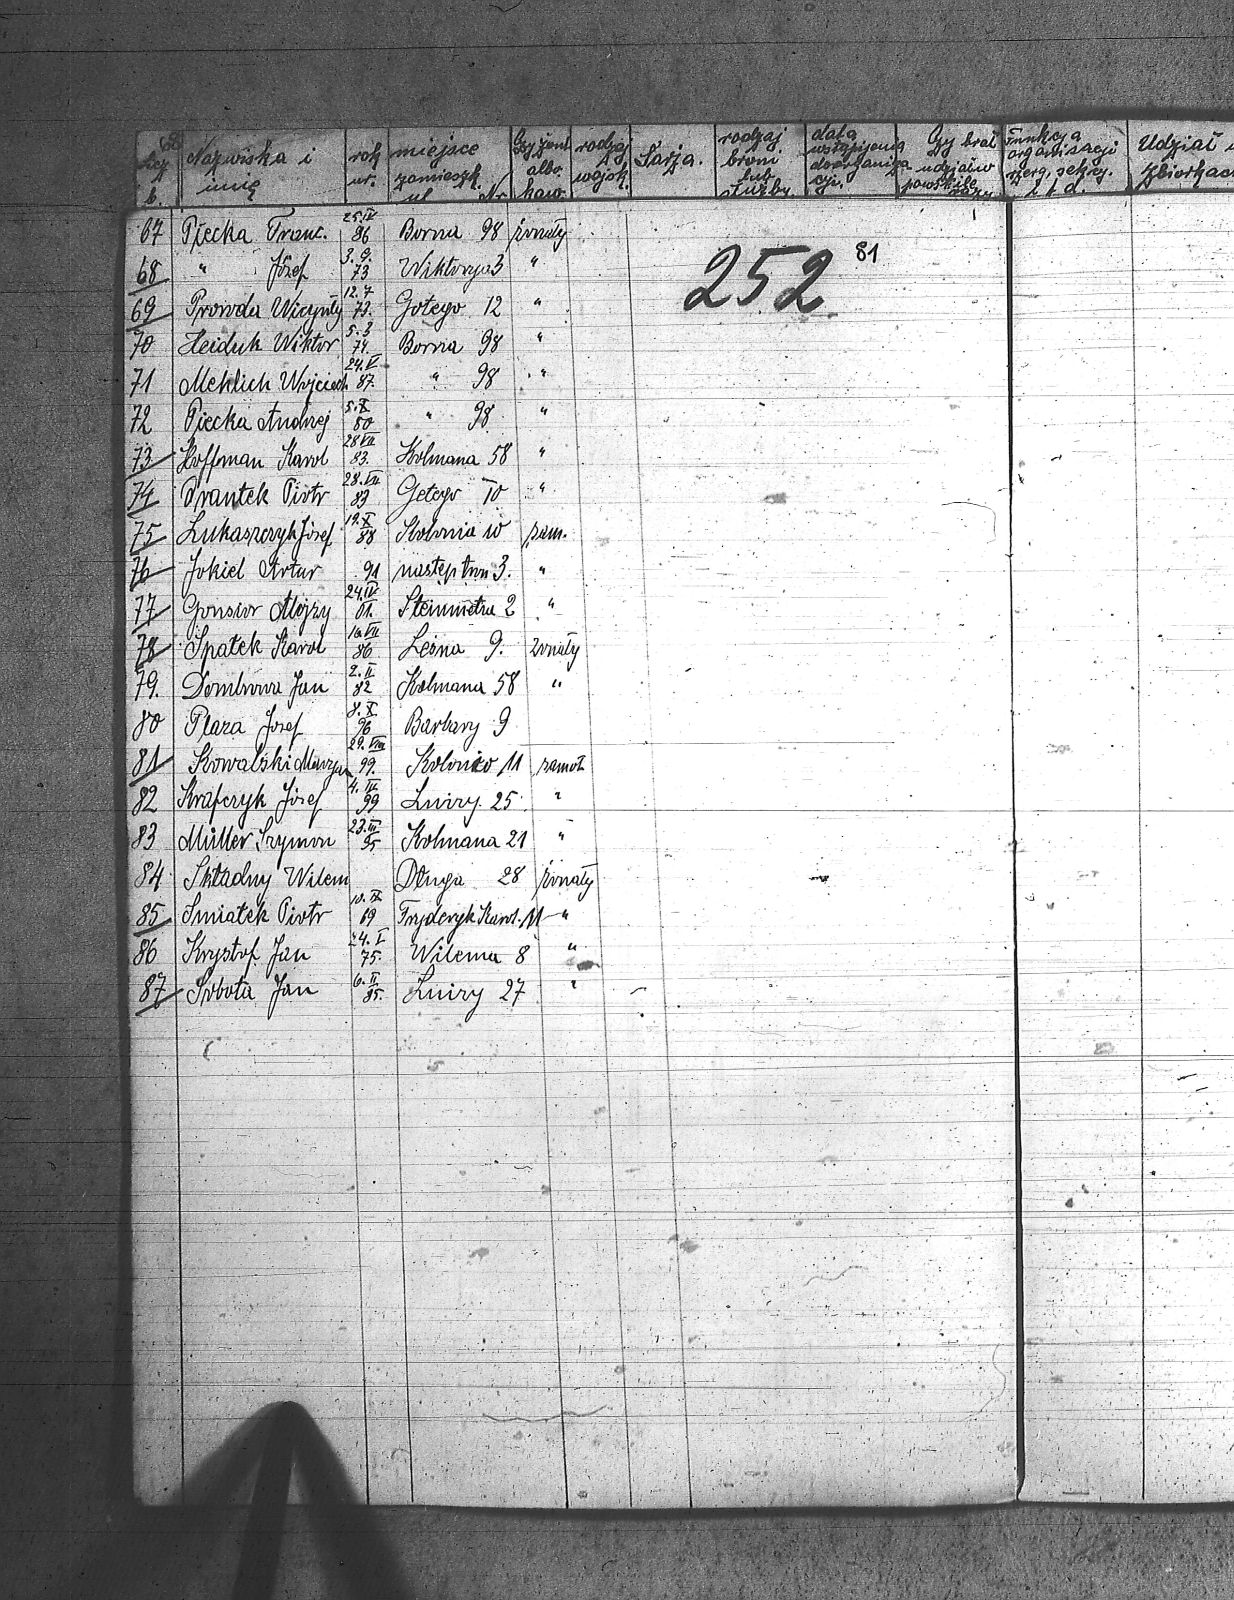 Nazwiska i imię rok ur. miejsce zamieszk. ul. Nr. Czy żonat. albo kaw. rodzaj wojsk. Sarża. rodzaj broni lub służby. data wstąpienia do organizacji. Czy brał udział w powstIe funkcja organizacji Udział w Zbiorkach
252 81
67 Piecka Franc. 25.IV 96 Borna 98 żonaty
68 " Józef 3.9. 73 Wiktorja 3 "
69 Prowda Wicynty 12.7 73. Gotego 12 "
70 Heiduk Wiktor 5.3 74. Borna 98 "
71 Mehlich Wojciech 24.V 87. " 98 "
72 Piecka Andrzej 5.X 80 " 98 "
73 Hoffman Karol 28 VII 83. Kolmana 58 "
74 Frantek Piotr 28.VII 83 Getego 10 "
75 Łukaszczyk Józef 19.X 88 Kolonia 10 sam.
76 Jokiel Artur 91 następ tron 3. "
77 Gonsior Alojzy 24.IV 01. Steinmetra 2 "
78 Spałek Karol 86 Leśna 9. żonaty
79. Dombrowa Jan 2.II 82 Kolmana 58 "
80 Plaza Józef 8.X 96 Barbary 9
81 Kowalski Maryjan 29.VIII 99. Kolonio 11 samot
82 Krafczyk Józef 4.III 99 Luizy. 25 "
83 Müller Szymon 23.III 95 Kolmana 21 "
84 Składny Wilem Długa 28 żonaty
85 Smiatek Piotr 10.IX 69 Fryderyk Karol. 11 "
86 Krystof Jan 24.V 75. Wilema 8 "
87 Sobota Jan 6.II 85. Luizy 27 "